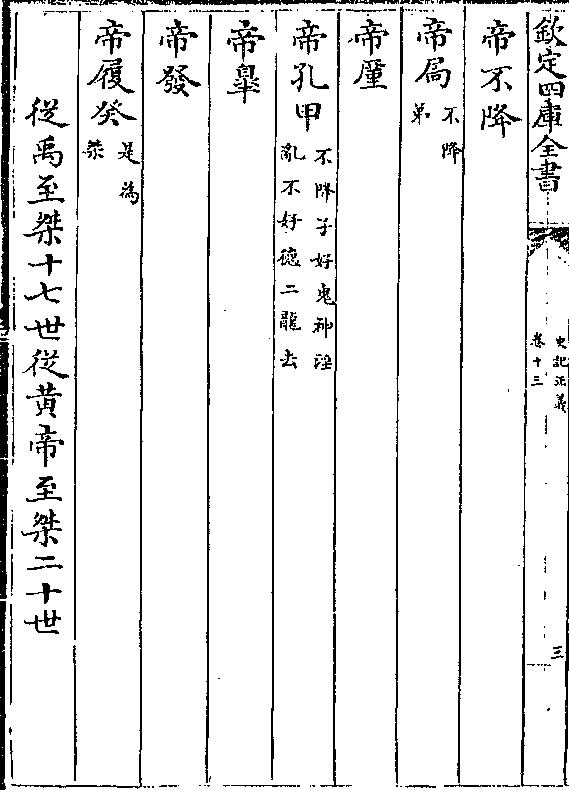 欽定四庫全書
史記正義
卷十三
三
帝不降
帝扃
不降
弟
帝廑
帝孔甲
不降子好鬼神淫
亂不好德二龍去
帝皐
帝發
帝履癸
是為
桀
從禹至桀十七世從黃帝至桀二十世